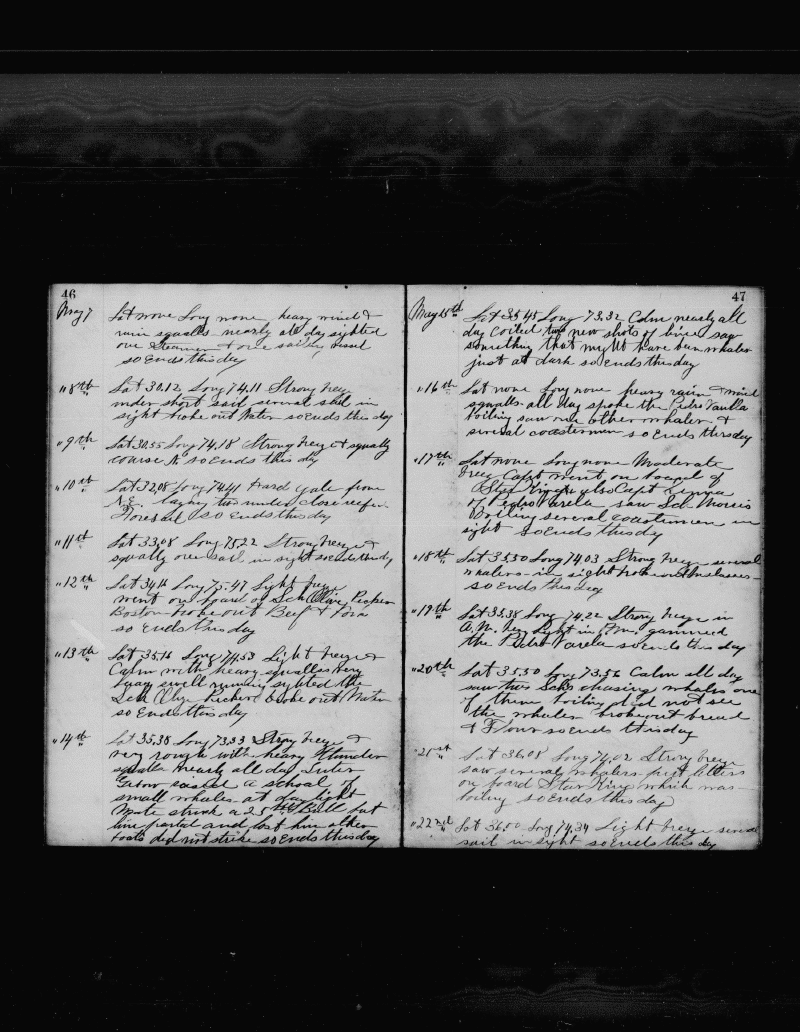 46
May 7 Lat none Long none, heavy wind &
rain squalls nearly all day sighted
one Steamer & one sailing vessel
so Ends this day
" 8th Lat 30.12 Long 74.11 Strong breeze
under short sail several sail in
sight broke out Water so Ends this day
" 9th Lat 30.55 Long 74.18 Strong breeze & squally
course N. so Ends this day
" 10th Lat 32.08 Long 74.41 Hard gale from
N.E. laying too under close reefed
Foresail so Ends this day
" 11th Lat 33.08 Long 75.22 Strong breeze &
squally one sail in sight so Ends this day
" 12th Lat 34.14 Long 75.47 Light breeze
went on board of Sch Olive
Boston broke out Beef & Pork
so Ends this day
" 13th Lat 35.16 Long 74.53 Light breeze &
Calm with heavy squalls very
swell running sighted the
Sch broke out Water
so Ends this day
" 14th Lat 35.38 Long 73.33 Strong breeze &
very rough with heavy thunder
squalls nearly all day
raised a school of
small whales at day light
Mate struck a 25 bbl Bull but
line parted and lost him other
boats did not strike so Ends this day
47
May 15th Lat 35.45 Long 73.32 Calm nearly all
day coiled two new shots of line saw
something that might have been whales
just at dark so ends this day
" 16th Lat none Long none heavy rain & wind
squalls all day spoke the Pedro Varella
boiling saw one other whaler &
several coastermen so Ends this day
" 17th Lat none Long none Moderate
breeze Capt went on board of
Star King also Capt
of Pedro Varella saw Sch Morris
Boiling several coastermen in
sight so Ends this day
" 18th Lat 35.50 Long 74.03 Strong breeze several
whalers in sight broke out
so Ends this day
" 19th Lat 35.38 Long 74.22 Strong breeze in
A.M. Light in P.M. gammed
the Pedro Varella so ends this day
" 20th Lat 35.50 Long 73.56 Calm all day
saw two Schs chasing whales one
of them boiling did not see
the whales broke out bread
& Flour so Ends this day
" 21st Lat 36.08 Long 74.02 Strong breeze
saw several whalers put letters
on board Star King which was
boiling so Ends this day
" 22nd Lat 36.00 Long 74.34 Light breeze several
sail in sight so Ends this day